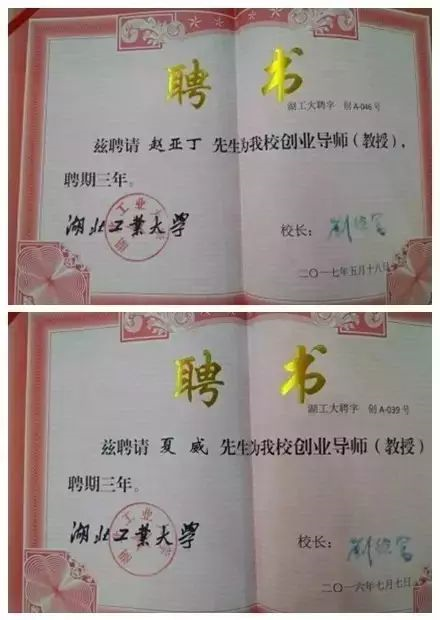 聘书
湖工大聘字 创A-046号
兹聘请 赵亚丁 先生为我校创业导师(教授),
聘期三年。
湖北工业大学
校长:
二〇一七年五月十八日
聘书
湖工大聘字 创A-039号
兹聘请 夏威 先生为我校创业导师(教授)
聘期三年。
湖北工业大学
校长:
二〇一六年七月七日